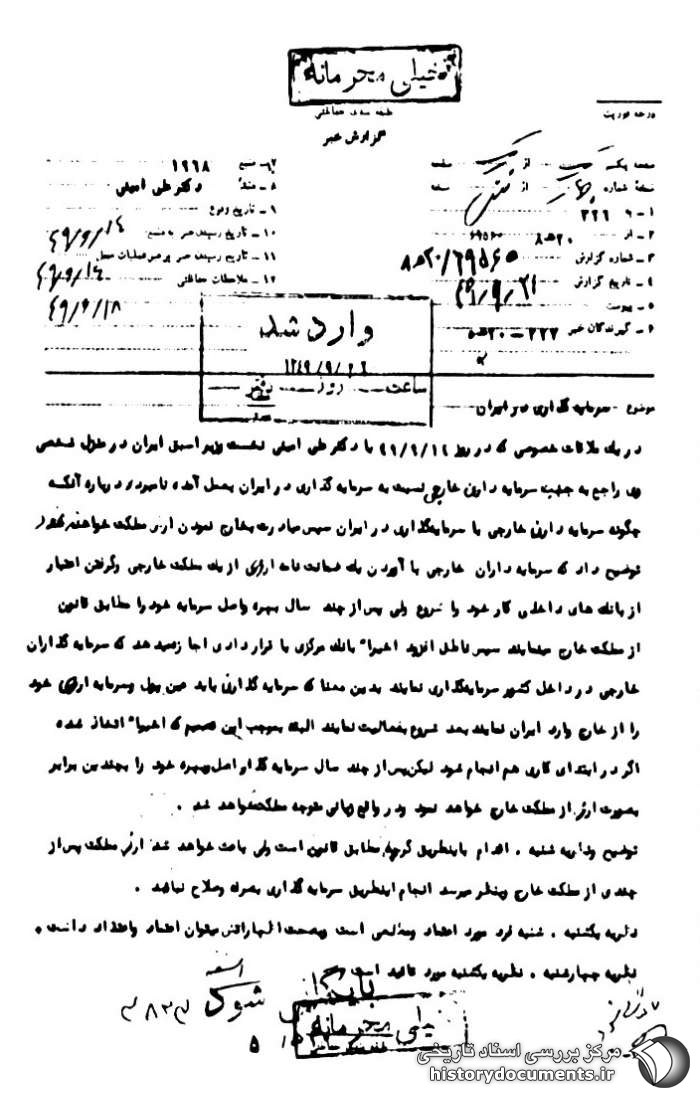 خیلی محرمانه
طبقه بندی حفاظتی
گزارش خبر
درجه فوریت
صفحه یک از صفحه
نسخه شماره از نسخه
۱ـ به ۳۲۲
۲ـ از ۲۰ه۸ ۶۹۵۶۰
۳ـ شماره گزارش ۶۹۵۶۰/۲۰ه۸
۴ـ تاریخ گزارش ۴۹/۹/۲۱
۵ـ پیوست
۶ـ گیرندگان خبر ۳۲۲ـ ۲۰ه۵
۷ـ منبع ۱۹۶۸
۸ـ منشأ دکتر علی امینی
۹ـ تاریخ وقوع
۱۰ـ تاریخ رسیدن خبر به منبع ۴۹/۹/۱۴
۱۱ـ تاریخ رسیدن خبر به رهبر عملیات محل ۴۹/۹/۱۴
۱۲ـ ملاحظات حفاظتی ۴۹/۹/۱۸
وارد شد
ساعت روز دفتر
موضوع ـ سرمایه گذاری در ایران
در یک ملاقات خصوصی که در روز ۴۹/۹/۱۴ با دکتر علی امینی نخست وزیر اسبق ایران در منزل شخصی
وی راجع به جهت سرمایه داران خارجی نسبت به سرمایه گذاری در ایران بعمل آمده نامبرده درباره آنکه
چگونه سرمایه داران خارجی با سرمایه‌گذاری در ایران سپس مبادرت بخارج نمودن ارز مملکت خواهند نمود
توضیح داد که سرمایه داران خارجی با آوردن یک ضمانت نامه ارزی از یک مملکت خارجی و گرفتن اعتبار
از بانک های داخلی کار خود را شروع ولی پس از چند سال بهره و اصل سرمایه خود را مطابق قانون
از مملکت خارج مینمایند سپس ناطق افزود اخیراً بانک مرکزی با قراردادی اجازه میدهد که سرمایه گذاران
خارجی در داخل کشور سرمایه‌گذاری نمایند بدین معنا که سرمایه گذاران باید عین پول و سرمایه ارزی خود
را از خارج وارد ایران نمایند بعد شروع بفعالیت نمایند البته بموجب این تصمیم که اخیراً اتخاذ شده
اگر در ابتدای کاری هم انجام شود لیکن پس از چند سال سرمایه گذار اصل و بهره خود را بچندین برابر
بصورت ارز از مملکت خارج خواهد نمود و در واقع زیانی متوجه مملکت خواهد شد .
توضیح و نظریه شنبه . اقدام باینطریق گرچه مطابق قانون است ولی باعث خواهد شد ارز مملکت پس از
چندی از مملکت خارج و بنظر میرسد انجام اینطریق سرمایه گذاری بصرفه و صلاح نباشد .
نظریه یکشنبه . شنبه فرد مورد اعتماد و مطلعی است و بصحت اظهاراتش میتوان اعتماد و اعتقاد داشت .
نظریه چهارشنبه . نظریه یکشنبه مورد تائید است
بایگانی
شوکر
۳۸۳۳
خیلی محرمانه
مرکز بررسی اسناد تاریخی
historydocuments.ir